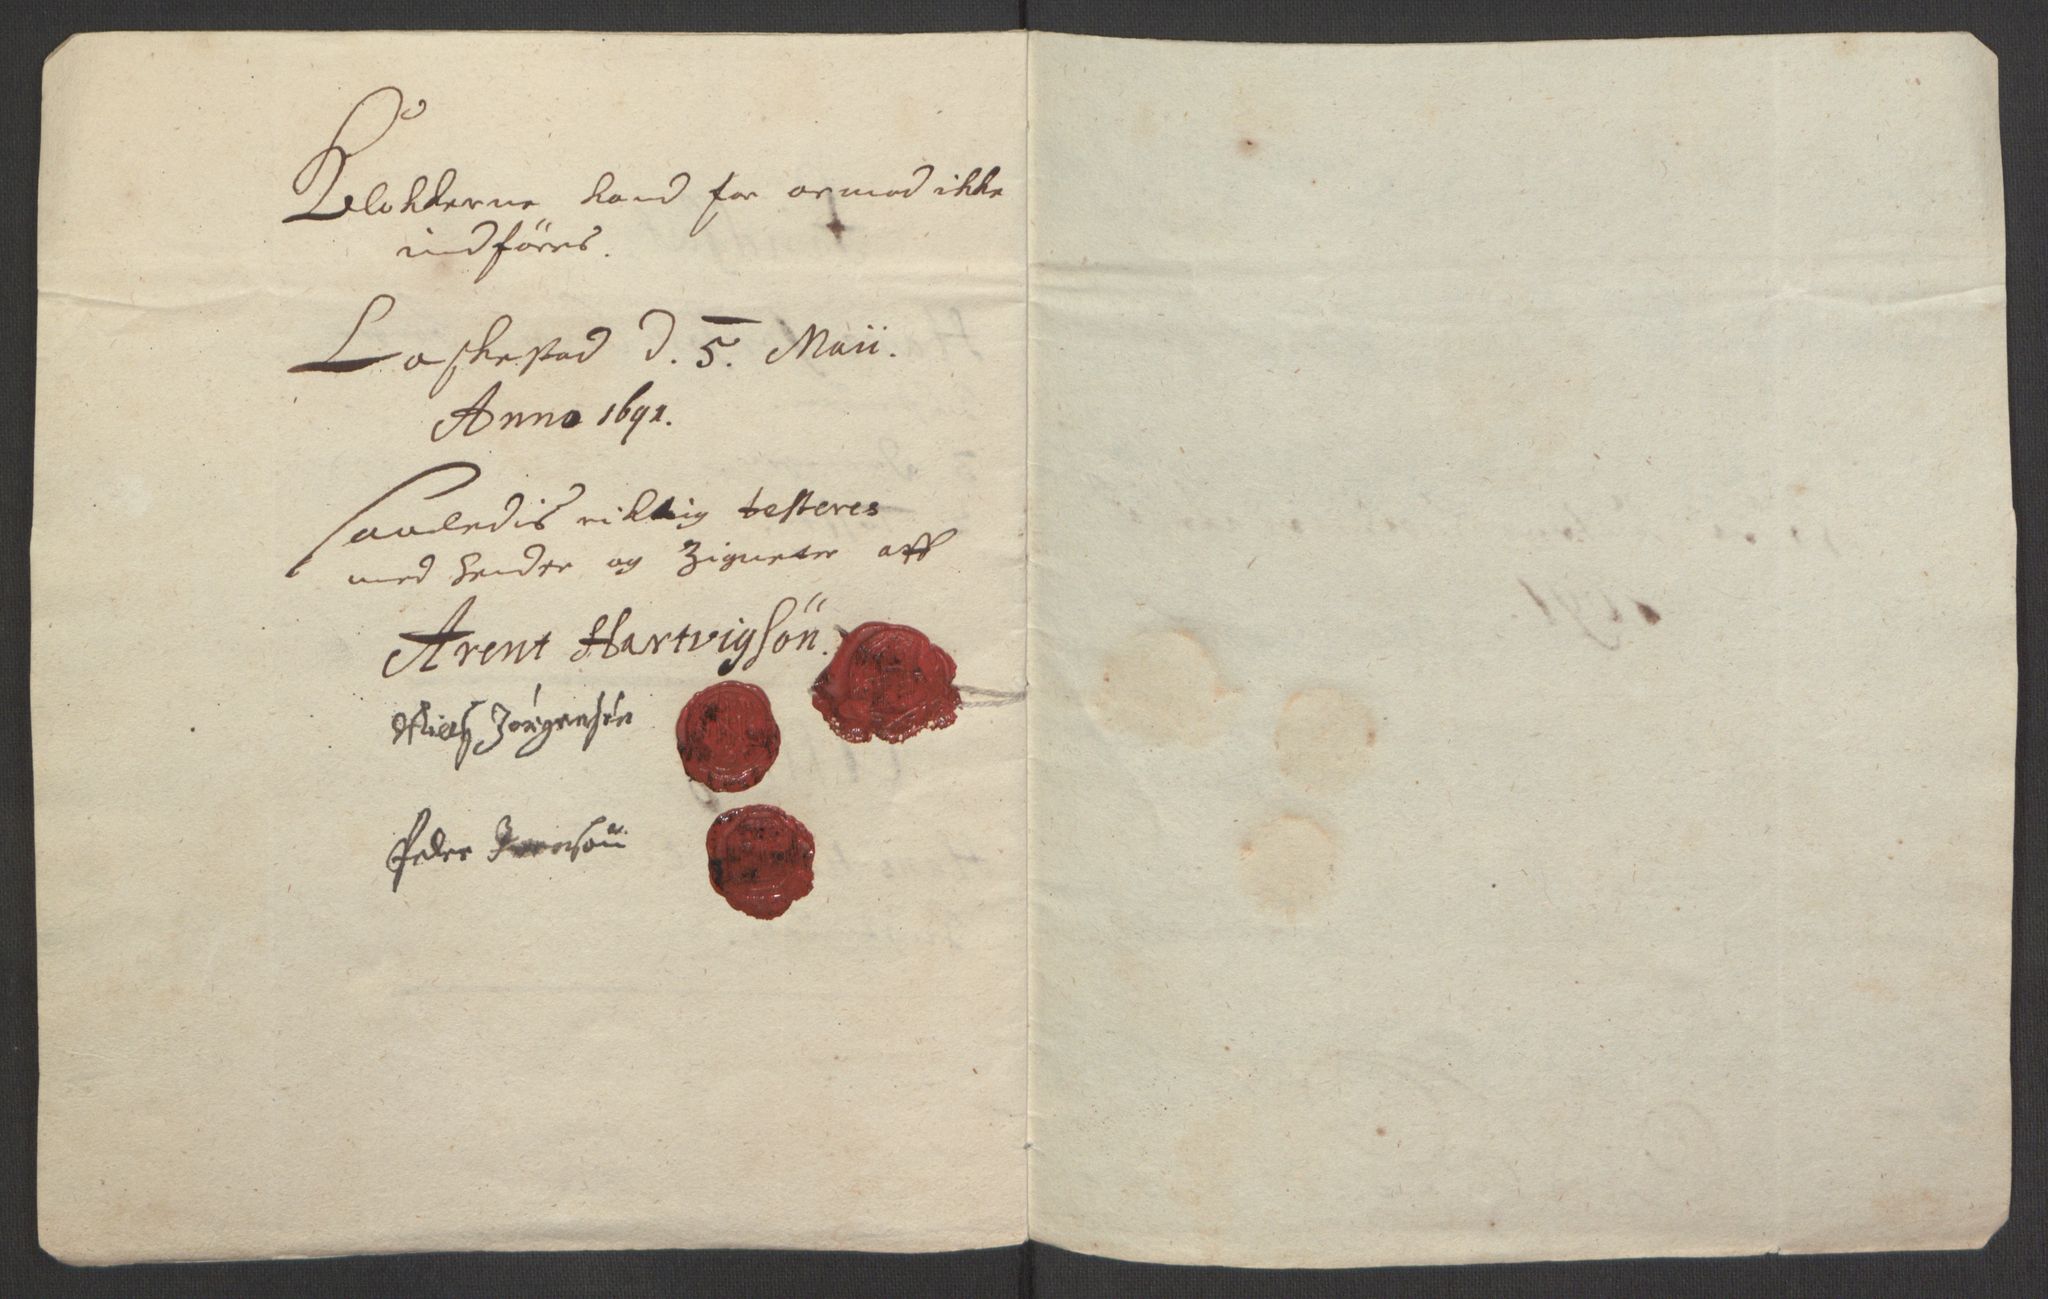 Klokkerne kand for armod ikke
indföres.
Laskestad d. 5. Maii.
Anno 1691.
Saaledis riktig testeres
med hender og Zigneter aff
Arent Hartvigsön.
Niels Jörgensön
Peder